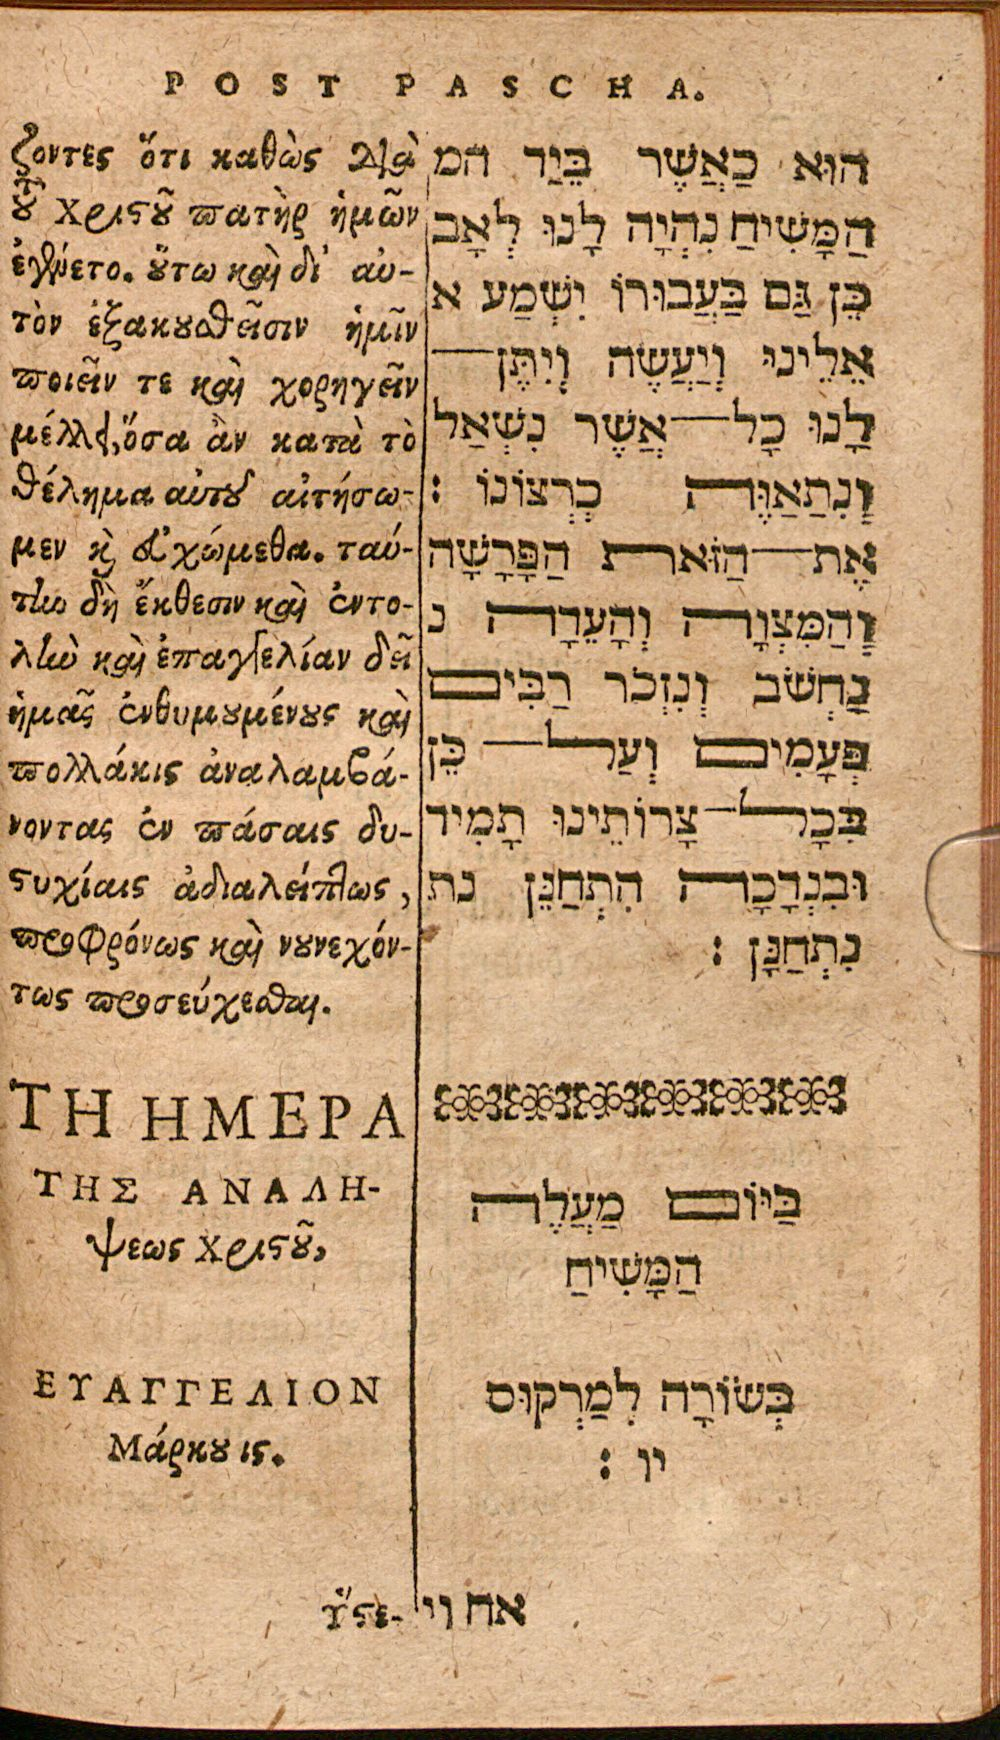 POST PASCHA.
ζοντες ὅτι καθὼς διὰ
τοῦ Χριστοῦ πατὴρ ἡμῶν
ἐγένετο. οὕτω καὶ δι' αὐ-
τὸν ἐξακουσθεῖσιν ἡμῖν
ποιεῖν τε καὶ χορηγεῖν
μέλλει, ὅσα ἂν κατὰ τὸ
θέλημα αὐτοῦ αἰτήσω-
μεν καὶ εὐχώμεθα. ταύ-
την δὴ ἔκθεσιν καὶ ἐντο-
λὴν καὶ ἐπαγγελίαν δεῖ
ἡμᾶς ἐνθυμουμένους καὶ
πολλάκις ἀναλαμβά-
νοντας ἐν πάσαις δυ-
στυχίαις ἀδιαλείπτως,
προφρόνως καὶ νουνεχόν-
τως προσεύχεσθαι.
ΤΗ ΗΜΕΡΑ
ΤΗΣ ΑΝΑΛΗ-
ψεως Χριστοῦ,
ΕΥΑΓΓΕΛΙΟΝ
Μάρκου ις.
ὕστε-
הוּא כַאֲשֶׁר בְּיַד המ
הַמָּשִׁיחַ נִהְיָה לָנוּ לְאָב
כֵּן גַּם בַּעֲבוּרוֹ יִשְׁמַע א
אֵלֵינוּ וְיַעֲשֶׂה וְיִתֶּן־
לָנוּ כָל־אֲשֶׁר נִשְׁאַל
וְנִתַאַוֶּה כְרְצוֹנוֹ :
אֶת־הַזּוֹאת הַפָּרָשָׁה
וְהַמִּצְוָה וְהָעֵדָה נ
נַחְשֹׁב וְנִזְכֹּר רַבִּים
פְּעָמִים וְעַל־כֵּן
בְּכָל־צָרוֹתֵינוּ תָמִיד
וּבִנְדָכָה הִתְחַנֵּן נת
נִתְחַנָּן :
בַּיּוֹם מַעֲלֶה
הַמָּשִׁיחַ
בְּשׂוֹרָה לְמַרְקוּס
יו :
אח וי